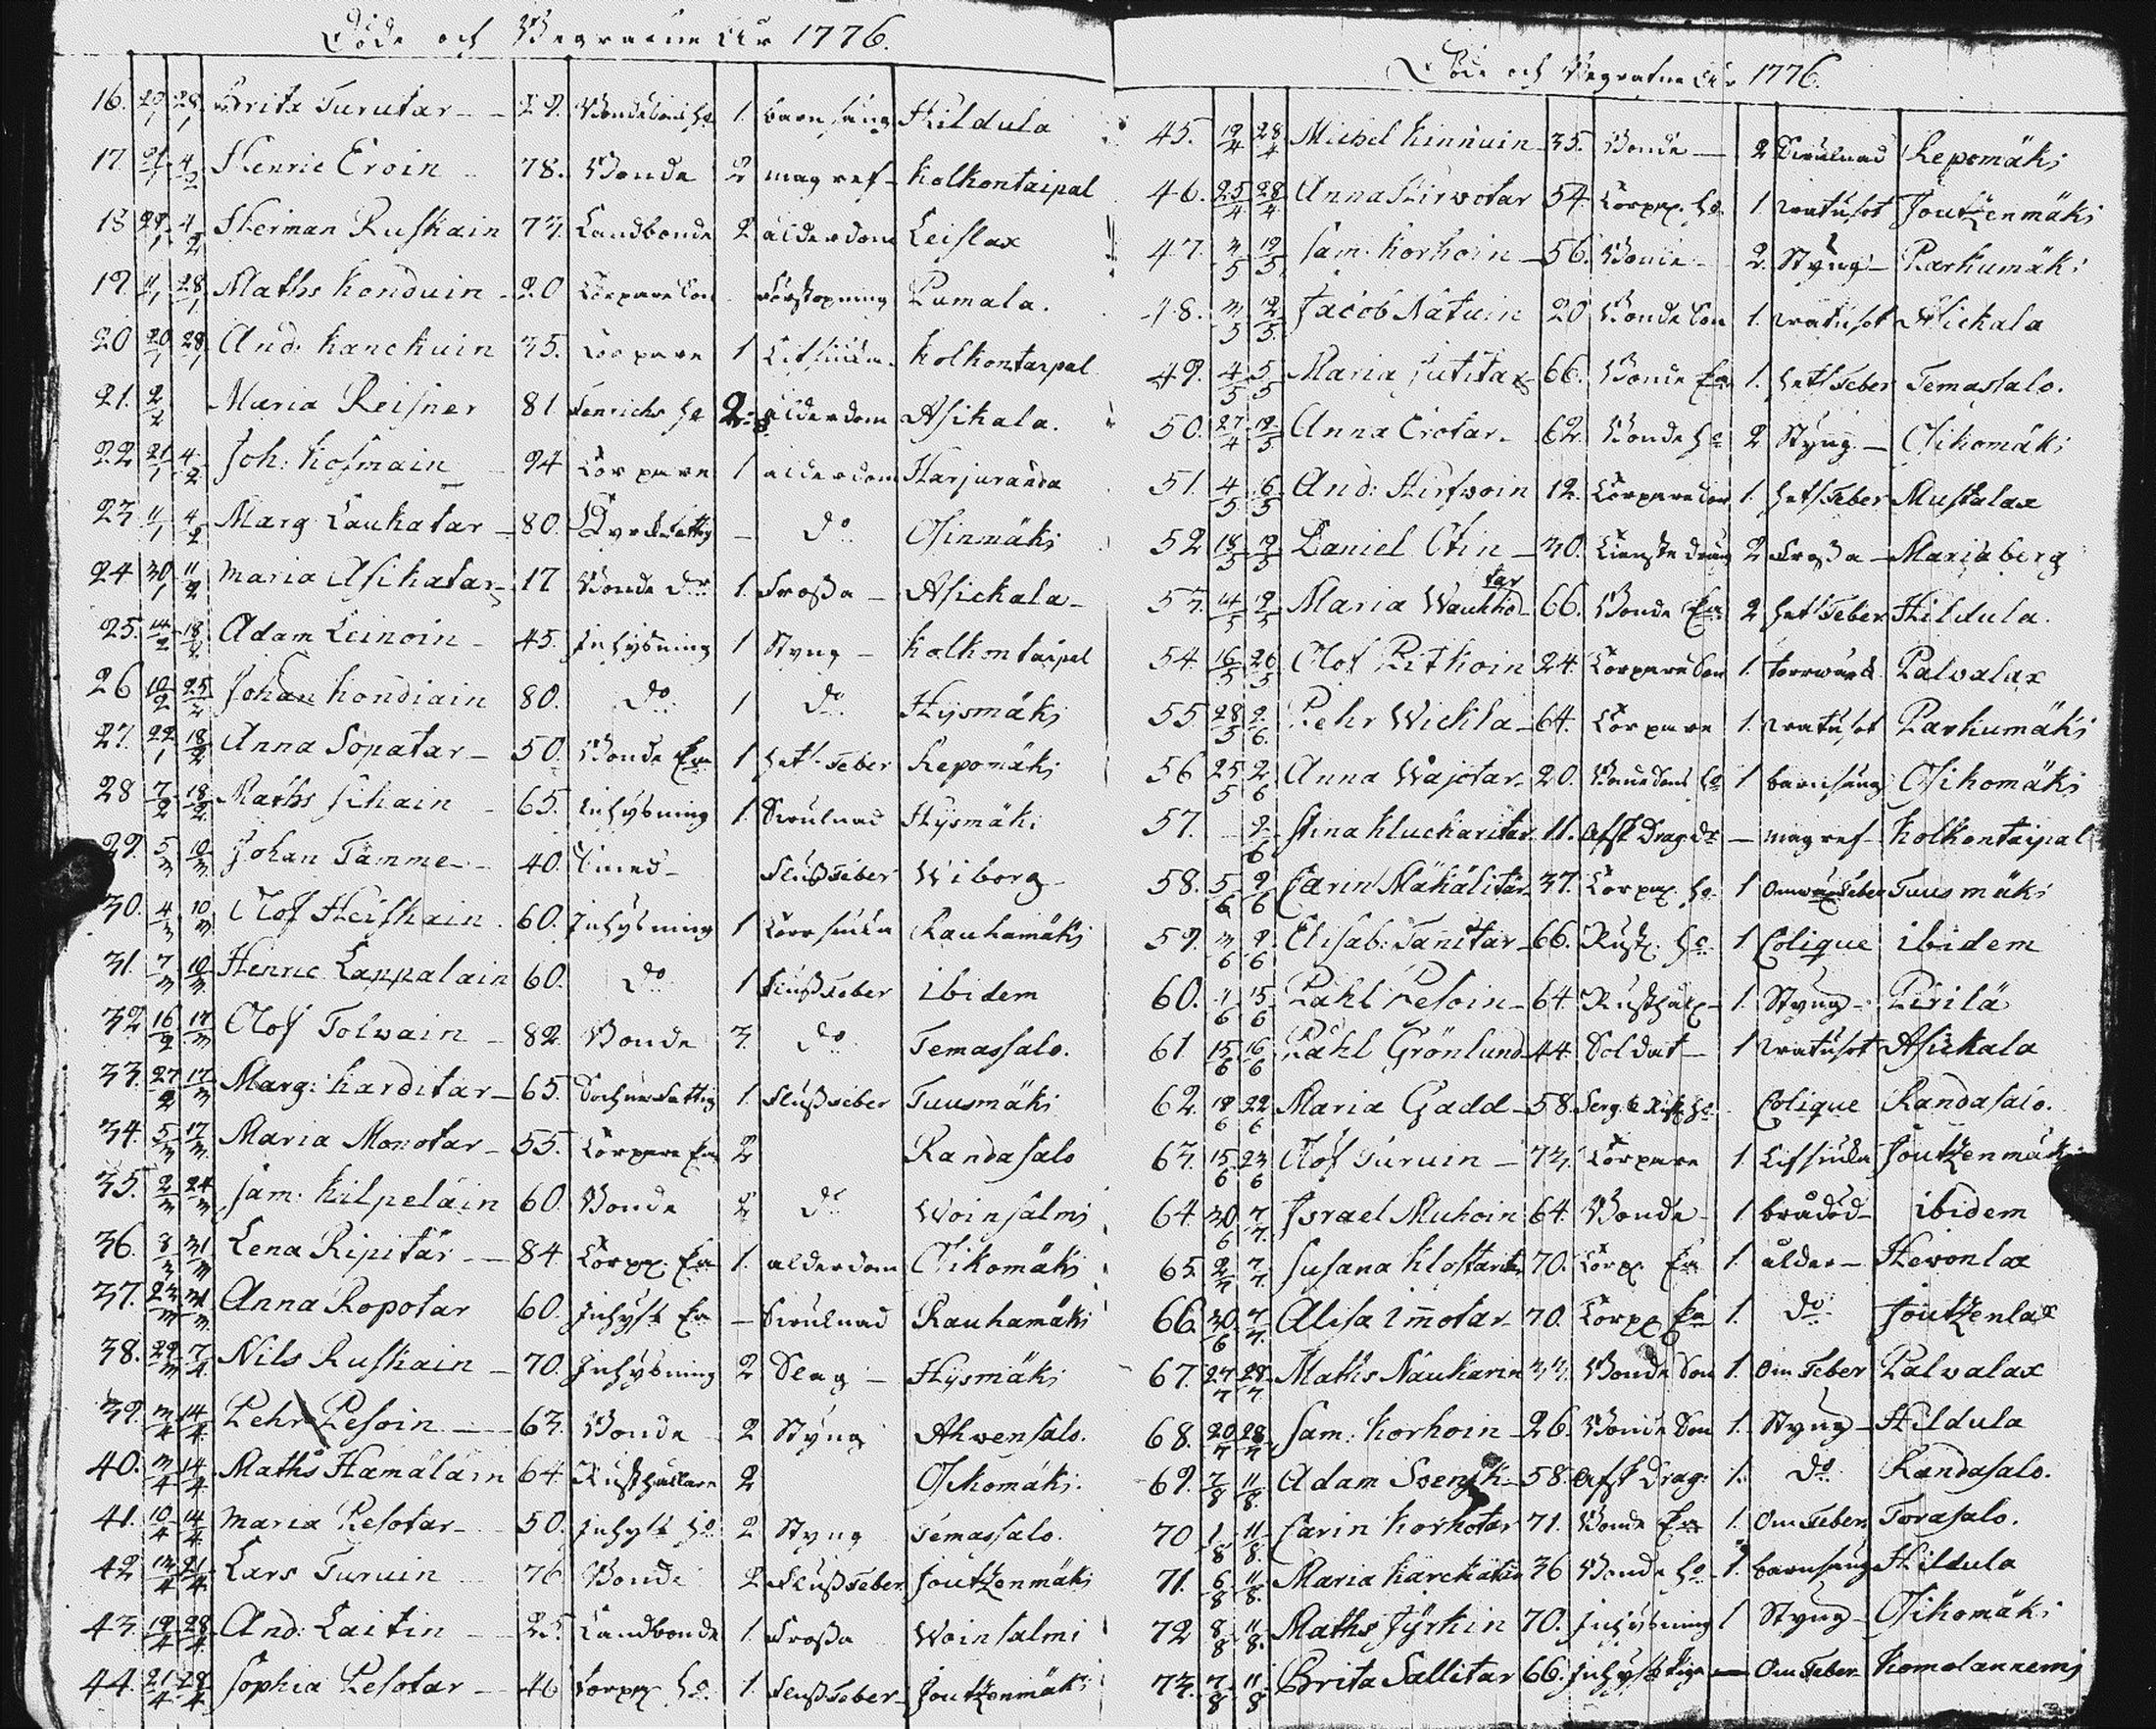 Döde och Begrafne År 1776.
16. 20/1 28/1 Brita Turutar 29. Bondesons h:o 1. barnsäng Hildula
17. 21/1 4/2 Henric Eroin 78. Bonde 2 mag ref Kolkontaipal
18 29/1 4/2 Herman Ruskain 73. Landbonde 2 ålderdom Leislax
19. 11/1 28/1 Maths Konduin 20 Torpare Son Förstopning Pumala.
20 20/1 28/1 And: Kanckuin 35. Torpare 1 Kolkontaipal
21. 2/2 Maria Reisner 81 Fenrichs h:o 2. ålderdom Asikala.
22 21/1 4/2 Joh: Kosmain 94 Torpare 1 ålderdom Harjuranda
23 11/1 4/2 Marg: Laukatar 80. – d:o Osinmäki
24 30/1 11/2 Maria Asikatar 17 Bonde d:r 1. Frossa Asickala
25. 14/2 18/2 Adam Leinoin 45. Inhysning 1 Styng Kolkontaipal
26 10/2 25/2 Johan Kondiain 80. d:o 1 d:o Hysmäki
27. 22/1 18/2 Anna Sopatar 50. Bonde Ea 1 het. Feber Repomäki
28 7/2 18/2 Maths Sihain 65. Inhysning 1. Swulnad Hysmäki
29. 5/3 10/3 Johan Tamme 40. Flussfeber Wiborg
30. 4/3 10/3 Olof Heiskain 60. Inhysning 1 Rauhamäki
31. 7/3 10/3 Henric Lappalain 60. d:o 1 Flussfeber ibidem
32 16/2 17/3 Olof Tolwain 82 Bonde 3. d:o Temassalo.
33. 27/2 17/3 Marg: Karditar 65. Sochnefattig 1. Flussfeber Tuusmäki
34. 5/3 17/3 Maria Monotar 55. Torpare Ea 2 Randasalo
35. 2/3 24/3 Sam: Kilpeläin 60. Bonde 2 d:o Woinsalmi
36. 3/3 31/3 Lena Ripitär 84 Torp. Ea 1. ålderdom Oikomäki
37. 23/3 31/3 Anna Ropotar 60. Inhyse Ea – Swulnad Rauhamäki
38. 29/3 7/4 Nils Ruskain 70. Inhysning 2 Slag Hysmäki
39. 3/4 14/4 Pehr Pesoin 63. Bonde 2 Styng Ahwensalo.
40. 3/4 14/4 Maths Hamäläin 64 Rusthållare 2 Oikomäki.
41. 10/4 14/4 Maria Pesotar 50. Inhyse h:o 2 Styng Temassalo.
42 13/4 21/4 Lars Turuin 76 Bonde 2 Flussfeber Joutzenmäki
43. 19/4 28/4 And: Laitin 25. Landbonde 1. Frossa Woinsalmi
44. 21/4 28/4 Sophia Pesotar 46 Torp. h:o 1. Flussfeber Joutzenmäki
Döde och Begrafne År 1776.
45. 19/4 28/4 Michel Kinnuin 35. Bonde 2 Swulnad Repomäki
46. 25/4 28/4 Anna Hirwotar 54 Torp. h:o 1. Joutzenmäki
47. 3/5 19/5 Sam: Korhoin 56. Bonde 2. Styng Parkumäki
48. 3/5 12/5 Jacob Natuin 20 Bonde Son 1. Hickala
49. 4/5 5/5 Maria Jutitar 66. Bonde Ea 1. het. Feber Temassalo.
50. 27/4 19/5 Anna Erotar 62. Bonde h:o 2 Styng Oikomäki
51. 4/5 6/5 And: Hirfwoin 12. Torpare Son 1. het. Feber Mustalax
52 18/5 19/5 Daniel Otin 30. Tienste dräng 2 Frossa Mariæberg
53. 14/5 19/5 Maria Waukhotar 66. Bonde Ea 2 het. Feber Hildula.
54. 16/5 26/5 Olof Pitkoin 24. Torpare Son 1. torrwärk Palvalax
55 28/5 2/6 Pehr Wickla 64. Torpare 1. Parkumäki
56 25/5 2/6 Anna Wajotar 20. Bondesons h:o 1 barnsäng Oikomäki
57. 2/6 Stina Kluckaritar 11. Afsk Drag dr – mag ref Kolkontaipal
58. 5/6 9/6 Carin Mähälitar 37. Torp. h:o 1 Tuusmäki
59. 3/6 9/6 Elisab: Tanitar 66. Rusth. h:o 1 Colique ibidem
60. 1/6 15/6 Påhl Pesoin 64. Rusthåll. 1. Styng Pirilä
61 15/6 16/6 Påhl Grönlund 44 Soldat 1 Asickala
62. 19/6 22/6 Maria Gadd 58. Colique Randasalo.
63. 15/6 23/6 Olof Turuin 73. Torpare 1. Joutzenmäki
64. 30/6 7/7 Israel Muhoin 64. Bonde 1 brådöd ibidem
65. 2/7 7/7 Susana Klostaritar 70. Torp. Ea 1. ålder Hevonlax
66. 30/6 7/7 Alisa Immotar 70. Torp. Ea 1. d:o Joutzenlax
67. 27/7 28/7 Maths Naukarin 33. Bonde Son 1. Om Feber Palvalax
68. 20/7 28/7 Sam: Korhoin 26. Bonde Son 1. Styng Hildula
69. 7/8 11/8 Adam Svensk 58. Afsk Drag: 1. d:o Randasalo.
70 1/8 11/8 Carin Korhotar 71. Bonde Ea 1. Om Feber Torasalo.
71. 6/8 11/8 Maria Karckätar 36 Bonde h:o 1. barnsäng Hildula
72 8/8 11/8 Maths Jyrkin 70. Inhysning 1 Styng Oikomäki
73. 7/8 11/8 Brita Sallitar 66. Inhyse Piga – Om Feber Komolannemi